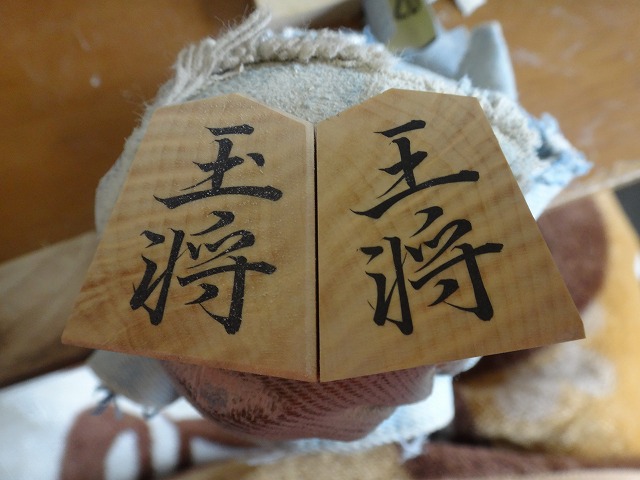 玉将
王将